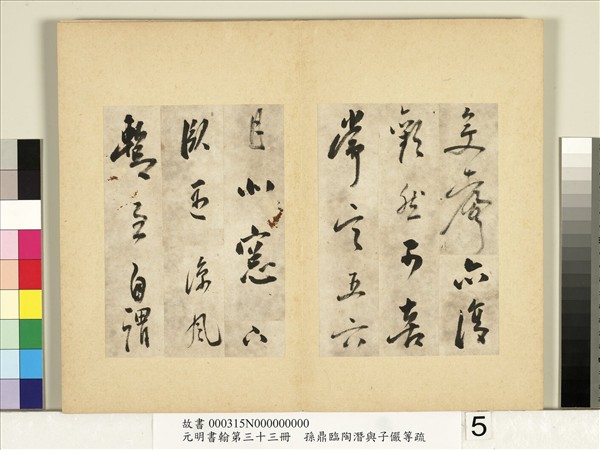 變聲亦復
歡然有喜
常言五六
月北窓下
臥遇涼風
暫至自謂
故書 000315N000000000
元明書翰第三十三冊　孫鼎臨陶潛與子儼等疏
5